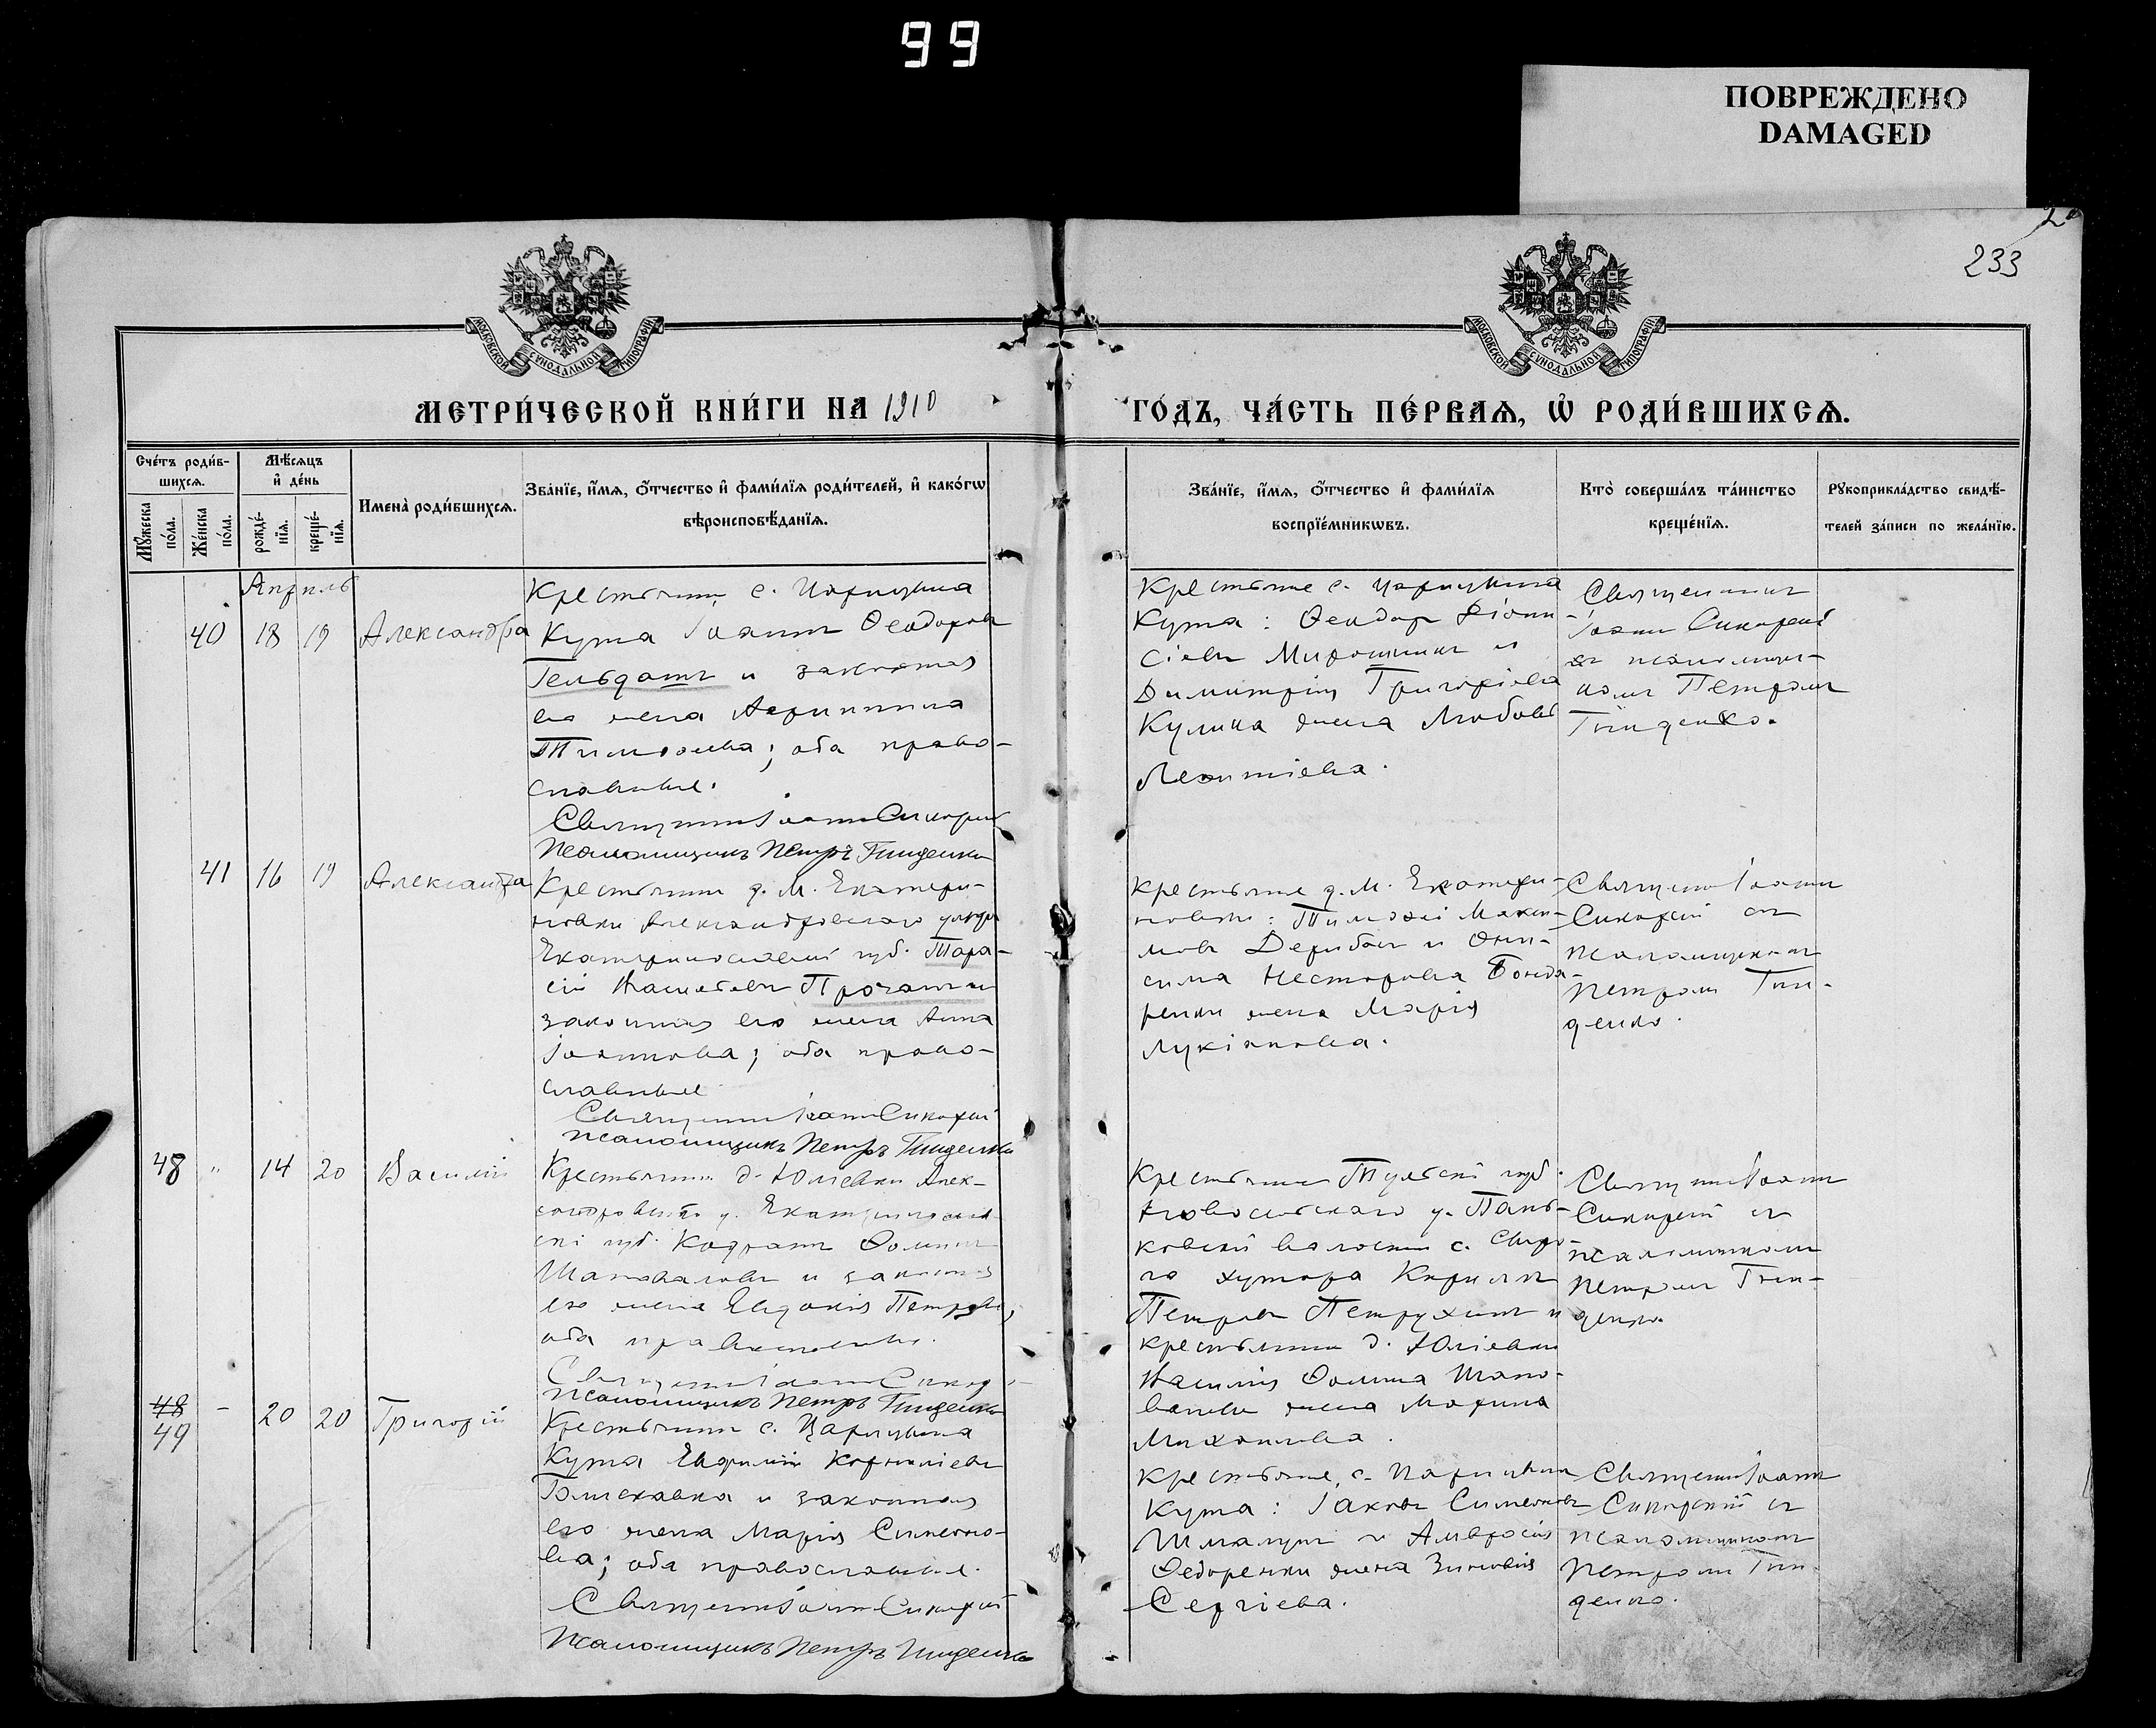 99
ПОВРЕЖДЕНО
DAMAGED
233
МОСКОВСКОЙ СѴНОДАЛЬНОЙ ТИПОГРАФІИ.
МОСКОВСКОЙ СѴНОДАЛЬНОЙ ТИПОГРАФІИ.
МЕТРИ́ЧЕСКОЙ КНИ́ГИ НА 1910
ГО́ДЪ, ЧА́СТЬ ПЕ́РВАѦ, Ѡ҆ РОДИ́ВШИХСѦ.
Сче́тъ роди́в-
шихсѧ.
Мꙋ́жеска по́ла.
Же́нска по́ла.
Мѣ́сѧцъ
и҆ де́нь
рожде́-нїѧ.
креще́-нїѧ.
Имена̀ роди́вшихсѧ.
Зва́нїе, и҆́мѧ, ѻ҆́тчество и҆ фами́лїѧ роди́телей, и҆ како́гѡ
вѣроисповѣ́данїѧ.
Зва́нїе, и҆́мѧ, ѻ҆́тчество и҆ фами́лїѧ
воспрїе́мникѡвъ.
Кто̀ соверша́лъ та́инство
креще́нїѧ.
Рꙋкоприкла́дство свидѣ́-
телей за́писи по жела́нїю.
Апрѣль
40 18 19 Александра
Крестьянинъ с. Царицына
Кута Іоаннъ Ѳеодоровъ
Гельдашъ и законная
его жена
Тимоѳеева; оба право-
славные.
Священникъ Іоаннъ Сикорскій
Псаломщикъ Петръ Гниденко
Крестьяне с. Царицына
Кута: Ѳеодоръ Діони
сіевъ Мирошникъ и
Димитрія Григоріева
Кулика жена Любовь
Леонтіева.
Священникъ
Іоаннъ Сикорскій
съ псаломщи-
комъ Петромъ
Гниденко.
41 16 19 Александра
Крестьянинъ д. М. Екатери-
новки Александровскаго уѣзда
Екатеринославской губ. Тара-
сій Васильевъ
законная его жена Анна
Іоаннова; оба право-
славные
Священникъ Іоаннъ Сикорскій
Псаломщикъ Петръ Гниденко
Крестьяне д. М. Екатери-
новки: Тимоѳей Макси-
мовъ Дерибасъ и Они-
сима Несторова Бонда-
ренки жена Марія
Лукіанова.
Священникъ Іоаннъ
Сикорскій съ
псаломщикомъ
Петромъ Гни-
денко.
48 " 14 20 Василій
Крестьянинъ д. Юльевки Алек-
сандровскаго у. Екатеринослав-
ской губ. Кодратъ Ѳоминъ
Шаповаловъ и законная
его жена Евдокія Петрова;
оба православные.
Священникъ Іоаннъ
Псаломщикъ Петръ Гниденко
Крестьяне Тульской губ.
Новосильскаго у. Пань-
ковской волости с.
го хутора Кириллъ
Петровъ Петрухинъ и
крестьянина д. Юліевки
Василія Ѳомина Шапо-
валова жена Марина
Михаилова.
Священникъ Іоаннъ
Сикорскій съ
псаломщикомъ
Петромъ Гни-
денко.
48
49 - 20 20 Григорій
Крестьянинъ с. Царицына
Кута Евфимій Корниліевъ
и законная
его жена Марія Симеоно-
ва; оба православные.
Священникъ Іоаннъ Сикорскій
Псаломщикъ Петръ Гниденко
Крестьяне с. Царицына
Кута: Іаковъ Симеоновъ
и Амвросія
Ѳедоренки жена Зиновія
Сергіева.
Священникъ Іоаннъ
Сикорскій съ
псаломщикомъ
Петромъ Гни-
денко.